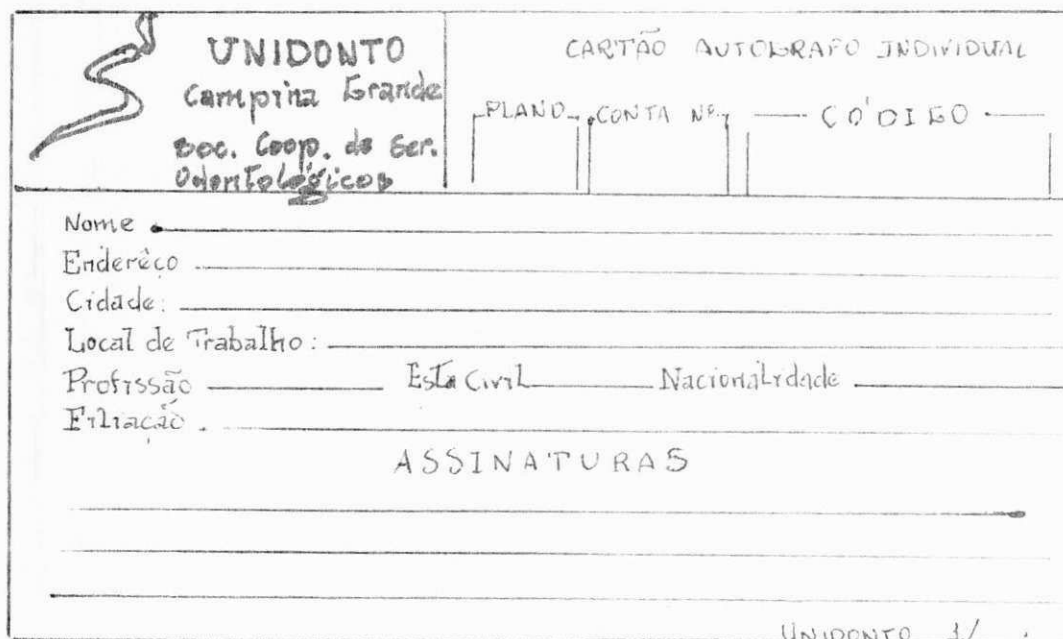 UNIDONTO
Campina Grande
Soc. Coop. de Ser.
Odontológicos
CARTÃO AUTOGRAFO INDIVIDUAL
PLANO CONTA Nº. CÓDIGO
Nome
Enderêço
Cidade:
Local de Trabalho:
Profissão Esta Civil Nacionalidade
Filiação.
ASSINATURAS
UNIDONTO 1/